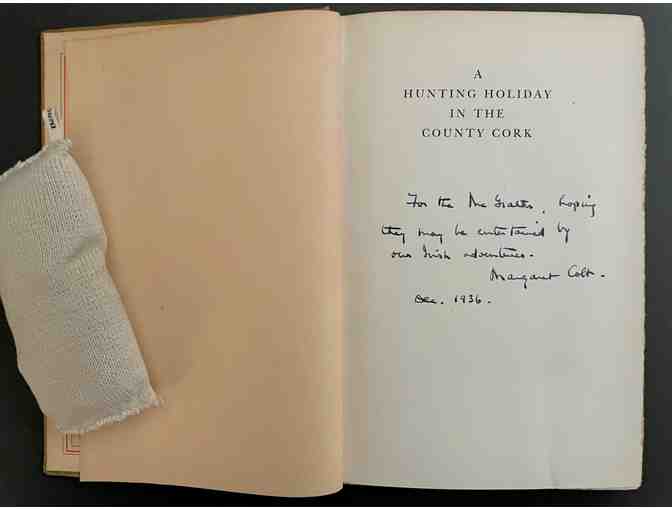 A
HUNTING HOLIDAY
IN THE
COUNTY CORK
For the Mc Grather, hoping
they may be entertained by
our Irish adventures.
Margaret Colt.
Dec. 1936.